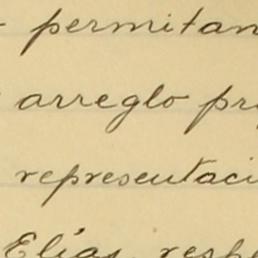 permitan
arreglo pr
representaci
Elías, resp